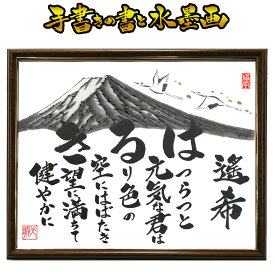 手書きの書と水墨画
遙希
はつらつと
元気な君は
るり色の
空にはばたき
きぼ望に満ちて
健やかに